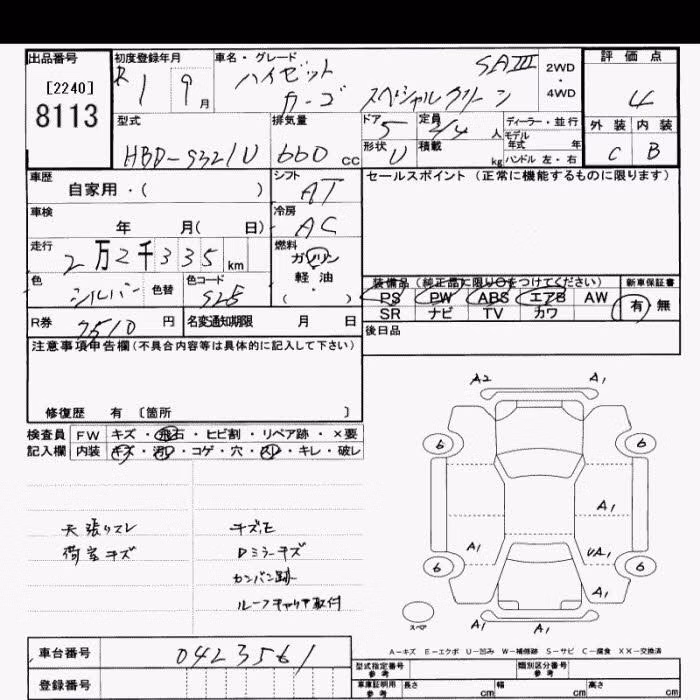 出品番号
[2240]
8113
初度登録年月
R 1 9 月
車名・グレード
ハイゼット
カーゴ スペシャルクリーン
SAIII
2WD
・
4WD
評価点
4
外装 内装
C B
型式
HBD-S321V
排気量
660 cc
ドア 5
形状 V
定員 2/4 人
積載 kg
ディーラー・並行
モデル
年式 年
ハンドル 左・右
車歴
自家用・( )
シフト
AT
セールスポイント(正常に機能するものに限ります)
車検
年 月( 日)
冷房
AC
走行
2万2千335 km
燃料
ガソリン
軽油
・
( )
色
シルバー
色替
色コード
S28
R券
7510 円
名変通知期限 月 日
装備品(純正品に限り○をつけてください)
PS PW ABS エアB AW
SR ナビ TV カワ
新車保証書
有 無
後日品
注意事項申告欄(不具合内容等は具体的に記入して下さい)
修復歴 有 [箇所 ]
検査員
記入欄
FW キズ・飛石・ヒビ割・リペア跡・×要
内装 キズ・汚れ・コゲ・穴・スレ・キレ・破レ
天張りスレ
荷室キズ
キズ、モ
Dミラーキズ
カンバン跡
ルーフキャリア取付
A2 A1
6 6
A1
A1 UA1
6 6
A1
スペア
A1 A1
A-キズ E-エクボ U-凹み W-補修跡 S-サビ C-腐食 XX-交換済
車台番号
0423561
登録番号
型式指定番号
参考
類別区分番号
参考
車庫証明用
参考
長さ cm
幅 cm
高さ cm